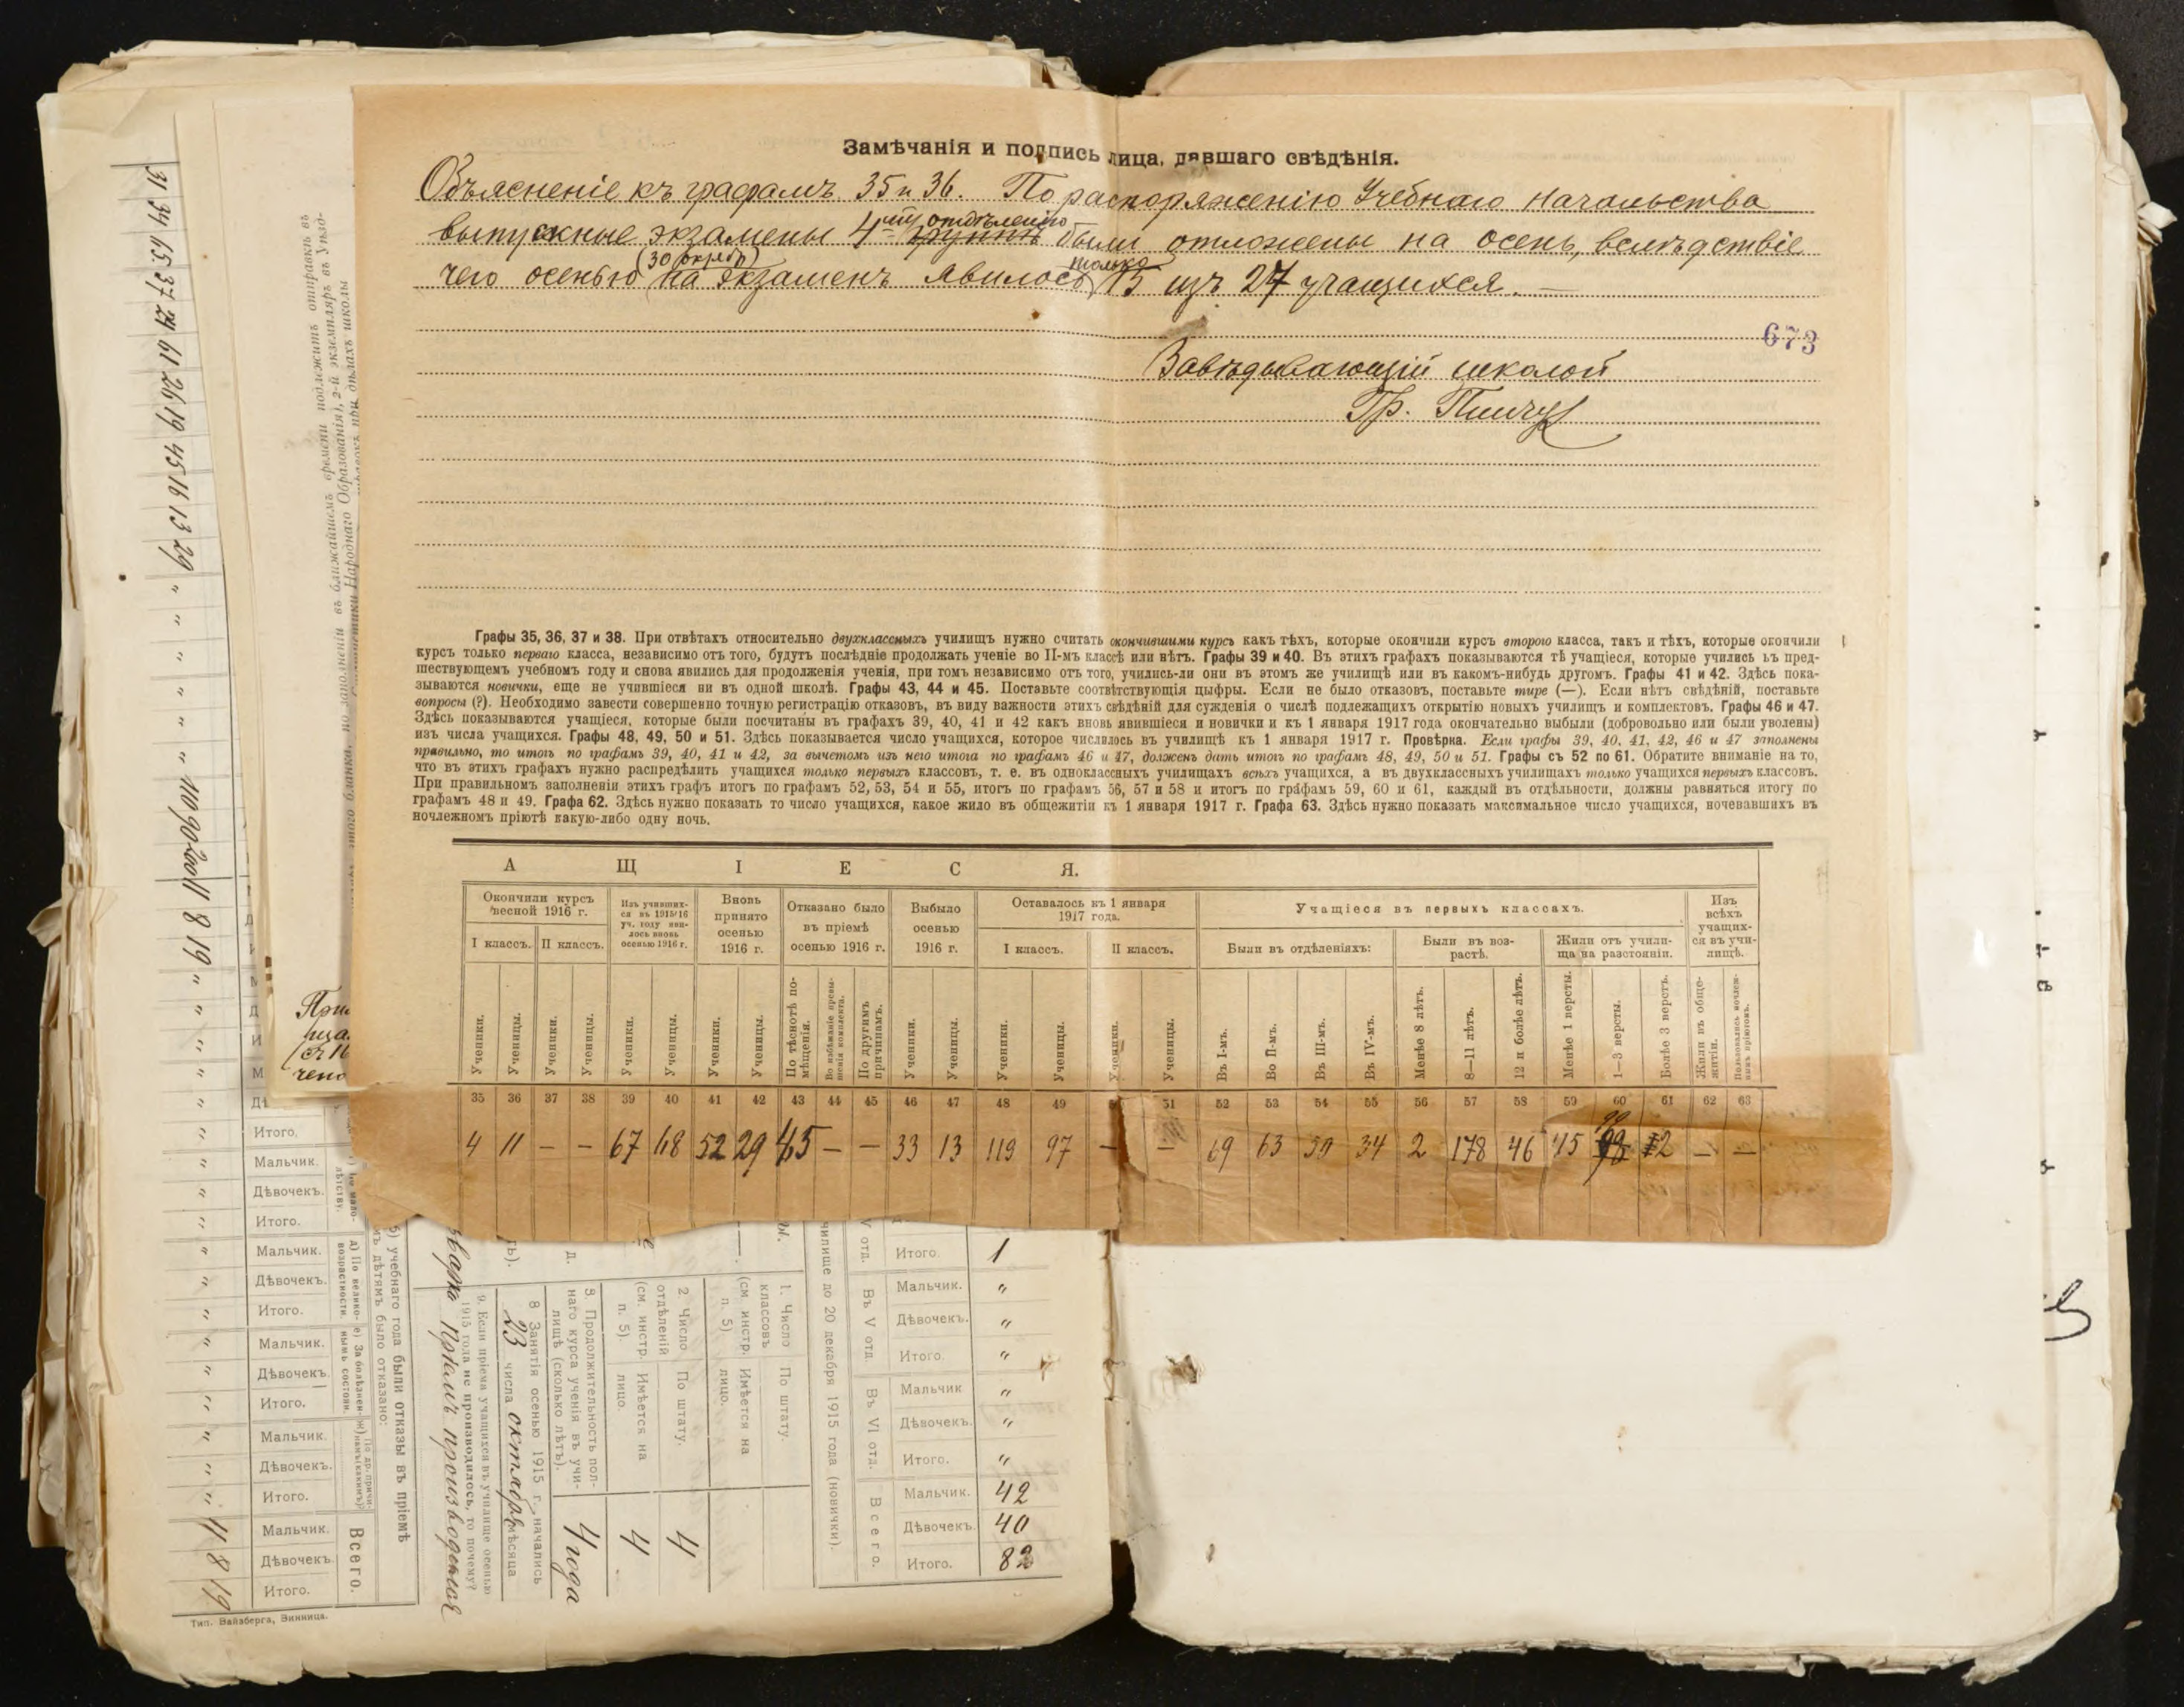 Замѣчанія и подпись лица, давшаго свѣдѣнія.
Объясненіе къ графамъ 35 и 36. По распоряженію Учебнаго Начальства
выпускные экзамены 4-ой отдѣленію были отложены на осень, вслѣдствіе
чего осенью (30 октяб) на экзаменъ явилось только 15 изъ 27 учащихся. —
673
Завѣдывающій школой
Гр.
Графы 35, 36, 37 и 38. При отвѣтахъ относительно двухклассныхъ училищъ нужно считать окончившими курсъ какъ тѣхъ, которые окончили курсъ второго класса, такъ и тѣхъ, которые окончили
курсъ только перваго класса, независимо отъ того, будутъ послѣдніе продолжать ученіе во II-мъ классѣ или нѣтъ. Графы 39 и 40. Въ этихъ графахъ показываются тѣ учащіеся, которые учились въ пред-
шествующемъ учебномъ году и снова явились для продолженія ученія, при томъ независимо отъ того, учились-ли они въ этомъ же училищѣ или въ какомъ-нибудь другомъ. Графы 41 и 42. Здѣсь пока-
зываются новички, еще не учившіеся ни въ одной школѣ. Графы 43, 44 и 45. Поставьте соотвѣтствующія цыфры. Если не было отказовъ, поставьте тире (—). Если нѣтъ свѣдѣній, поставьте
вопросы (?). Необходимо завести совершенно точную регистрацію отказовъ, въ виду важности этихъ свѣдѣній для сужденія о числѣ подлежащихъ открытію новыхъ училищъ и комплектовъ. Графы 46 и 47.
Здѣсь показываются учащіеся, которые были посчитаны въ графахъ 39, 40, 41 и 42 какъ вновь явившіеся и новички и къ 1 января 1917 года окончательно выбыли (добровольно или были уволены)
изъ числа учащихся. Графы 48, 49, 50 и 51. Здѣсь показывается число учащихся, которое числилось въ училищѣ къ 1 января 1917 г. Провѣрка. Если графы 39, 40, 41, 42, 46 и 47 заполнены
правильно, то итогъ по графамъ 39, 40, 41 и 42, за вычетомъ изъ него итога по графамъ 46 и 47, долженъ дать итогъ по графамъ 48, 49, 50 и 51. Графы съ 52 по 61. Обратите вниманіе на то,
что въ этихъ графахъ нужно распредѣлить учащихся только первыхъ классовъ, т. е. въ одноклассныхъ училищахъ всѣхъ учащихся, а въ двухклассныхъ училищахъ только учащихся первыхъ классовъ.
При правильномъ заполненіи этихъ графъ итогъ по графамъ 52, 53, 54 и 55, итогъ по графамъ 56, 57 и 58 и итогъ по графамъ 59, 60 и 61, каждый въ отдѣльности, должны равняться итогу по
графамъ 48 и 49. Графа 62. Здѣсь нужно показать то число учащихся, какое жило въ общежитіи къ 1 января 1917 г. Графа 63. Здѣсь нужно показать максимальное число учащихся, ночевавшихъ въ
ночлежномъ пріютѣ какую-либо одну ночь.
А Щ І Е С Я.
Окончили курсъ весной 1916 г.
Изъ учивших-ся въ 1915/16 уч. году яви-лось вновь осенью 1916 г.
Вновь принято осенью 1916 г.
Отказано было въ пріемѣ осенью 1916 г.
Выбыло осенью 1916 г.
Оставалось къ 1 января 1917 года.
Учащіеся въ первыхъ классахъ.
Изъ всѣхъ учащих-ся въ учи-лищѣ.
I классъ. II классъ.
I классъ. II классъ.
Были въ отдѣленіяхъ:
Были въ воз-растѣ.
Жили отъ учили-ща на разстояніи.
Ученики. Ученицы. Ученики. Ученицы. Ученики. Ученицы. Ученики. Ученицы.
По тѣснотѣ по-мѣщенія.
Во избѣжаніе превы-шенія комплекта.
По другимъ причинамъ.
Ученики. Ученицы. Ученики. Ученицы. Ученики. Ученицы.
Въ I-мъ. Во II-мъ. Въ III-мъ. Въ IV-мъ.
Менѣе 8 лѣтъ. 8—11 лѣтъ. 12 и болѣе лѣтъ.
Менѣе 1 версты. 1—3 версты. Болѣе 3 верстъ.
Жили въ обще-житіи.
Пользовались ночлеж-нымъ пріютомъ.
35 36 37 38 39 40 41 42 43 44 45 46 47 48 49 51 52 53 54 55 56 57 58 59 60 61 62 63
4 11 — — 67 68 52 29 45 — — 33 13 119 97 — — 69 63 50 34 2 178 46 45 99 2 — —
31 34 65 37 24 61 26 19 45 16 13 29 " " " " " " 110 90 200 11 8 19
Итого.
Мальчик.
Дѣвочекъ.
Итого.
Мальчик.
Дѣвочекъ.
Итого.
Мальчик.
Дѣвочекъ.
Итого.
Мальчик.
Дѣвочекъ.
Итого.
Мальчик. 11
Дѣвочекъ. 8
Итого. 19
д) По велико-возрастности.
е) За болѣзнен-нымъ состоян.
Всего.
учебнаго года были отказы въ пріемѣ
дѣтямъ было отказано:
9. Если пріема учащихся въ училище осенью
1915 года не производилось, то почему?
пріемъ производился
8 Занятія осенью 1915 г. начались
23 числа октября мѣсяца
3. Продолжительность пол-
наго курса ученія въ учи-
лищѣ (сколько лѣтъ).
4 года
2. Число отдѣленій (см. инстр. п. 5).
По штату. 4
Имѣется на лицо. 4
1. Число классовъ (см. инстр. п. 5).
По штату.
Имѣется на лицо.
училище до 20 декабря 1915 года (новички).
Итого. 1
Въ V отд.
Мальчик. "
Дѣвочекъ. "
Итого. "
Въ VI отд.
Мальчик "
Дѣвочекъ. "
Итого. "
Всего.
Мальчик. 42
Дѣвочекъ. 40
Итого. 82
Тип. Вайзберга, Винница.